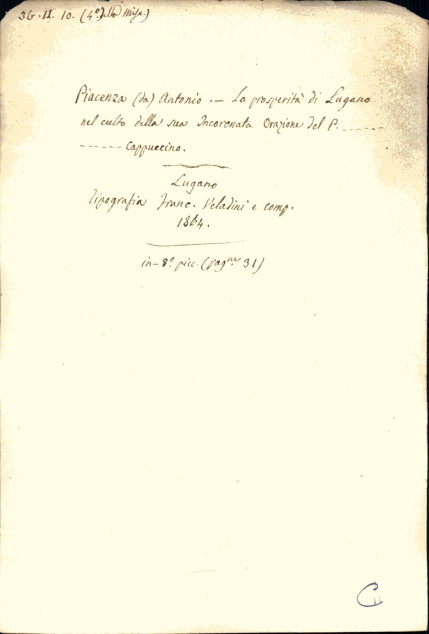 36. II. 10. (4º della Misc.)
Piacenza (da) Antonio. — La prosperità di Lugano
nel culto della sua Incoronata Orazione del P. ------
------ Cappuccino.
Lugano
Tipografia Franc. Veladini e comp.
1864.
in-8º picc. (pagne 31)